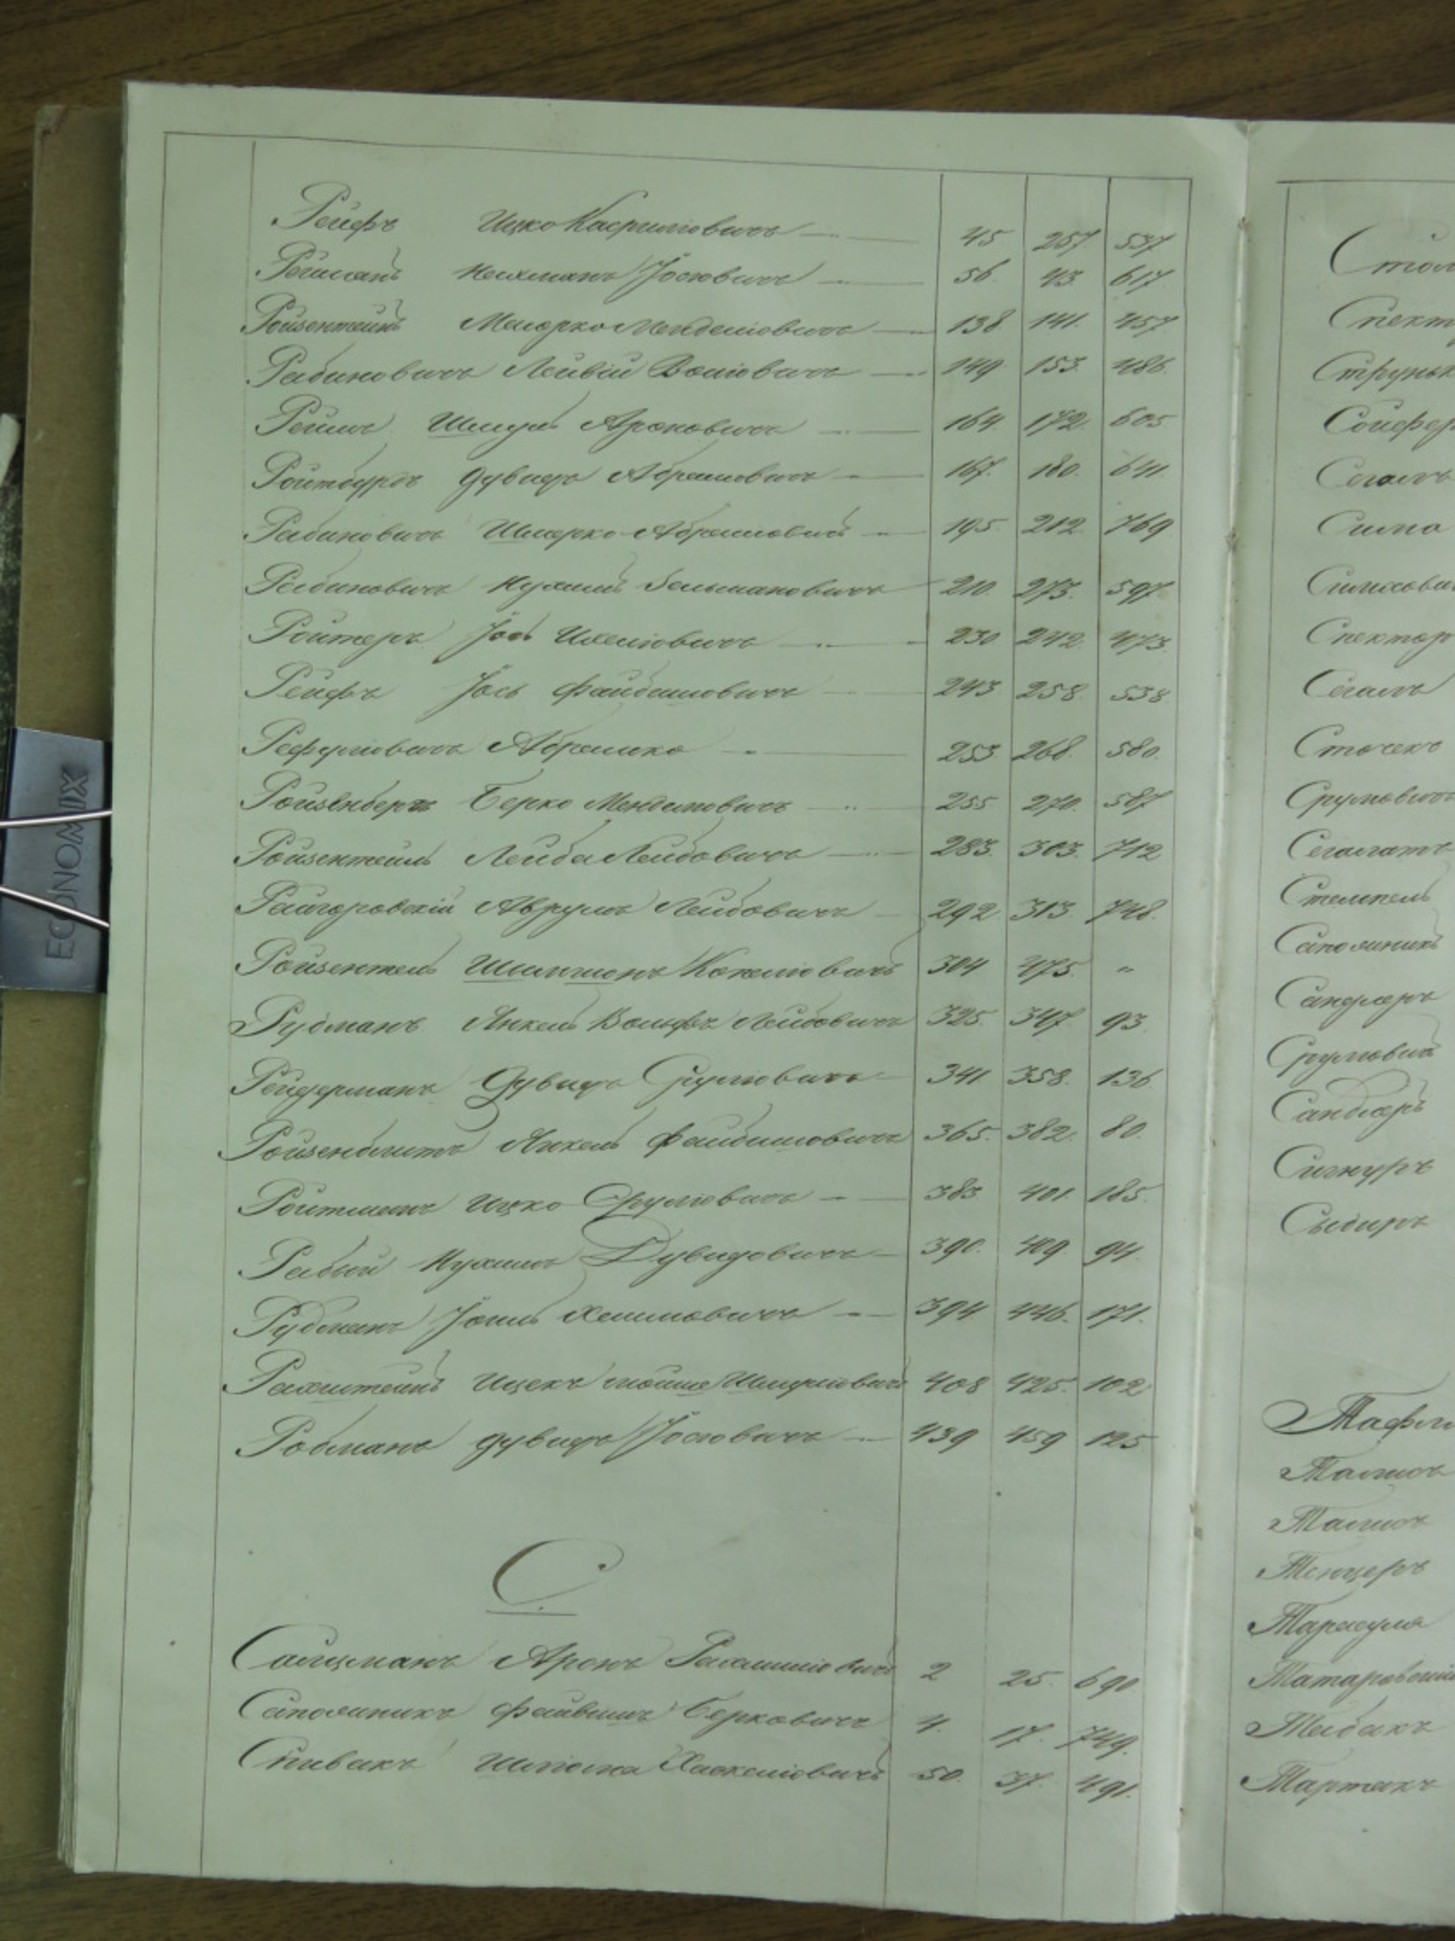 Рейфъ Ицко Касрилiовичъ 45 257 537
Нахманъ Iосiовичъ 56 43 617
Ройзентейнъ Мошко Менделiовичъ 138 141 457
Рабиновичъ Лейвiй Волiовичъ 149 153 486
Шмуль Ароновичъ 164 172 605
Ройтбурдъ Дувидъ Абрамовичъ 167 180 641
Рабиновичъ Шмерко Абрамовичъ 195 212 769
Рабиновичъ Нухимъ Зельмановичъ 210 273 597
Ройтеръ Iось Ихелiовичъ 230 242 473
Рейфъ Iось Файбишовичъ 243 258 538
Рефулiовичъ Абрамко 253 268 580
Ройзенбергъ Берко Мендиловичъ 255 270 587
Ройзентейнъ Лейба Лейбовичъ 283 303 712
Райгоровскiй Аврумъ Лейбовичъ 292 313 748
Ройзентель Шимшонъ 304 475 "
Рудманъ Янкель Вольфъ Лейбовичъ 325 347 93
Рейдерманъ Дувидъ Срулiовичъ 341 358 136
Ройзенблитъ Янкель Файбишовичъ 365 382 80
Ройтманъ Ицко Срулiовичъ 383 401 185
Рабый Нухимъ Дувидовичъ 390 409 94
Рудманъ Хаимовичъ 394 446 171
Рахштейнъ Ицекъ Мойше Шмулiовичъ 408 425 102
Ройманъ Дувидъ Iосiовичъ 439 459 125
С
Салцманъ Аронъ Рахмилiовичъ 2 25 690
Сапожникъ Файвишъ Берковичъ 4 17 749
Спивакъ Шлiома Хаскелiовичъ 50 37 491
Стол
Спект
Струнь
Сойфер
Сегалъ
Симо
Симхови
Спектор
Сегалъ
Сточекъ
Срулiовичъ
Сегалатъ
Стемпель
Сапожникъ
Сандлеръ
Срулiовичъ
Сандлеръ
Сигнуръ
Сыбиръ
Тафл
Талисъ
Талисъ
Тенцеръ
Тарасуля
Татаровскiй
Тыбакъ
Тартакъ
ECONOMIX